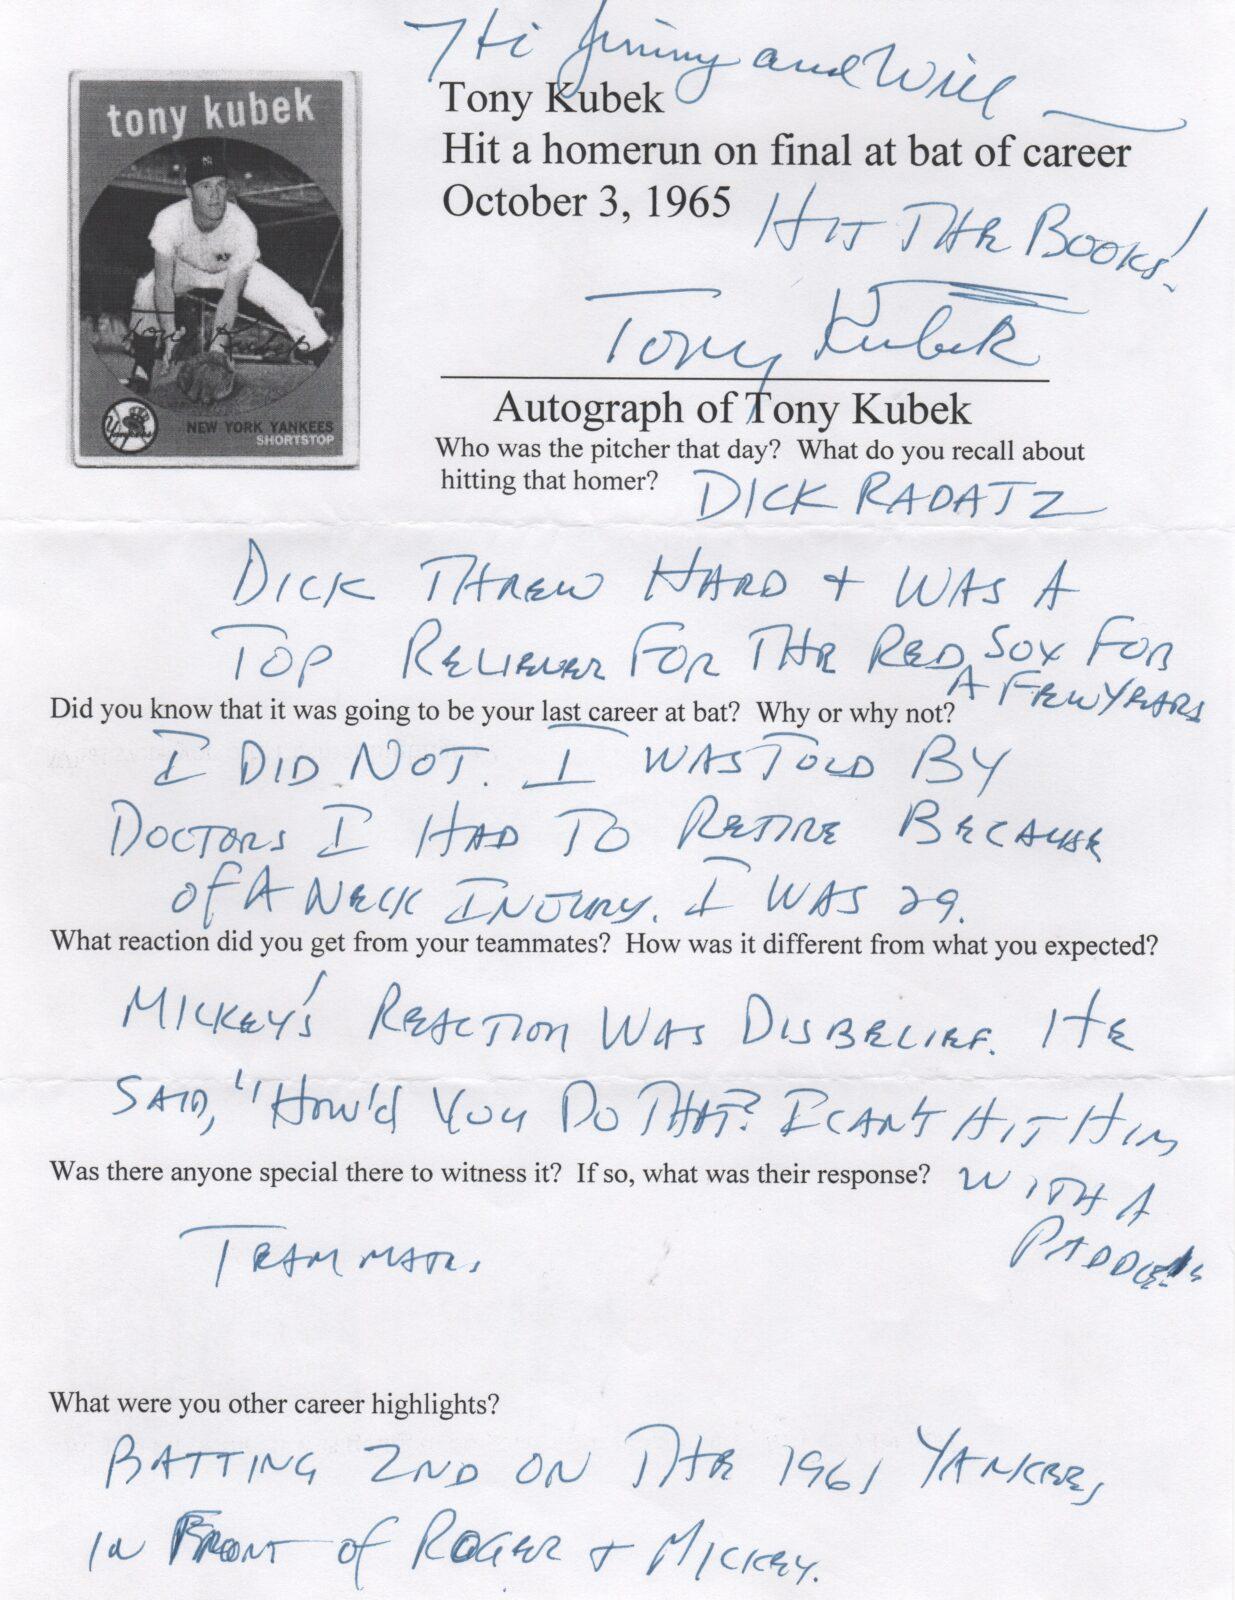 Hi Jimmy and Will
tony kubek
Tony Kubek
Hit a homerun on final at bat of career
October 3, 1965
HIT THE BOOKS!
Tony Kubek
Tony Kubek
Yankees
NEW YORK YANKEES
SHORTSTOP
Autograph of Tony Kubek
Who was the pitcher that day? What do you recall about
hitting that homer?
DICK RADATZ
DICK THREW HARD + WAS A
TOP RELIEVER FOR THE RED SOX FOR
A FEW YEARS
Did you know that it was going to be your last career at bat? Why or why not?
I DID NOT. I WAS TOLD BY
DOCTORS I HAD TO RETIRE BECAUSE
of A NECK INJURY. I WAS 29.
What reaction did you get from your teammates? How was it different from what you expected?
MICKEY'S REACTION WAS DISBELIEF. HE
SAID, "HOW'd YOU DO THAT? I CAN'T HIT HIM
WITH A
PADDLE!"
Was there anyone special there to witness it? If so, what was their response?
TEAMMATES.
What were you other career highlights?
BATTING 2ND ON THE 1961 YANKEES,
IN FRONT of ROGER + MICKEY.